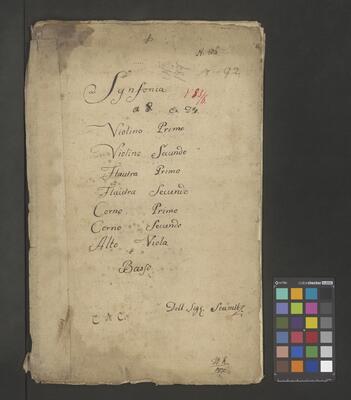 N. 186
92.
Synfonia
a 8
Violino Primo
Violino Secundo
Flautra Primo
Flautra Secundo
Corno Primo
Corno Secundo
Alto Viola
Basso
Dell Sigg. Staimltz